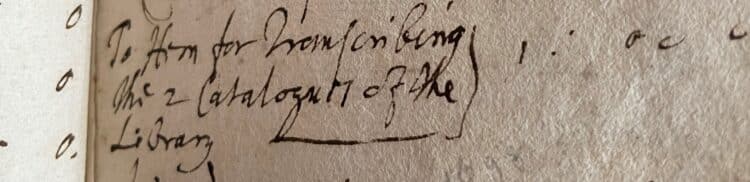 0 To Hem for Transcribing } 1 : 0 0
0 the 2 Catalogues of the
0. Library